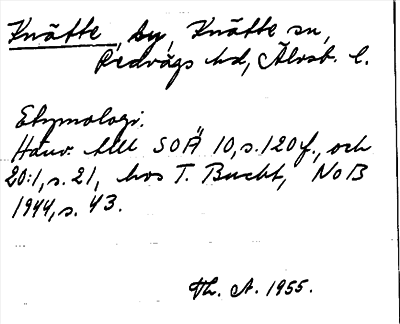 Knätte, by, Knätte sn,
Redvägs hd, Älvsb. l.
Etymologi.
Hänv. till SOÄ 10, s. 120 f., och
20:1, s. 21, hos T. Bucht, NoB
1944, s. 43.
Th. A. 1955.